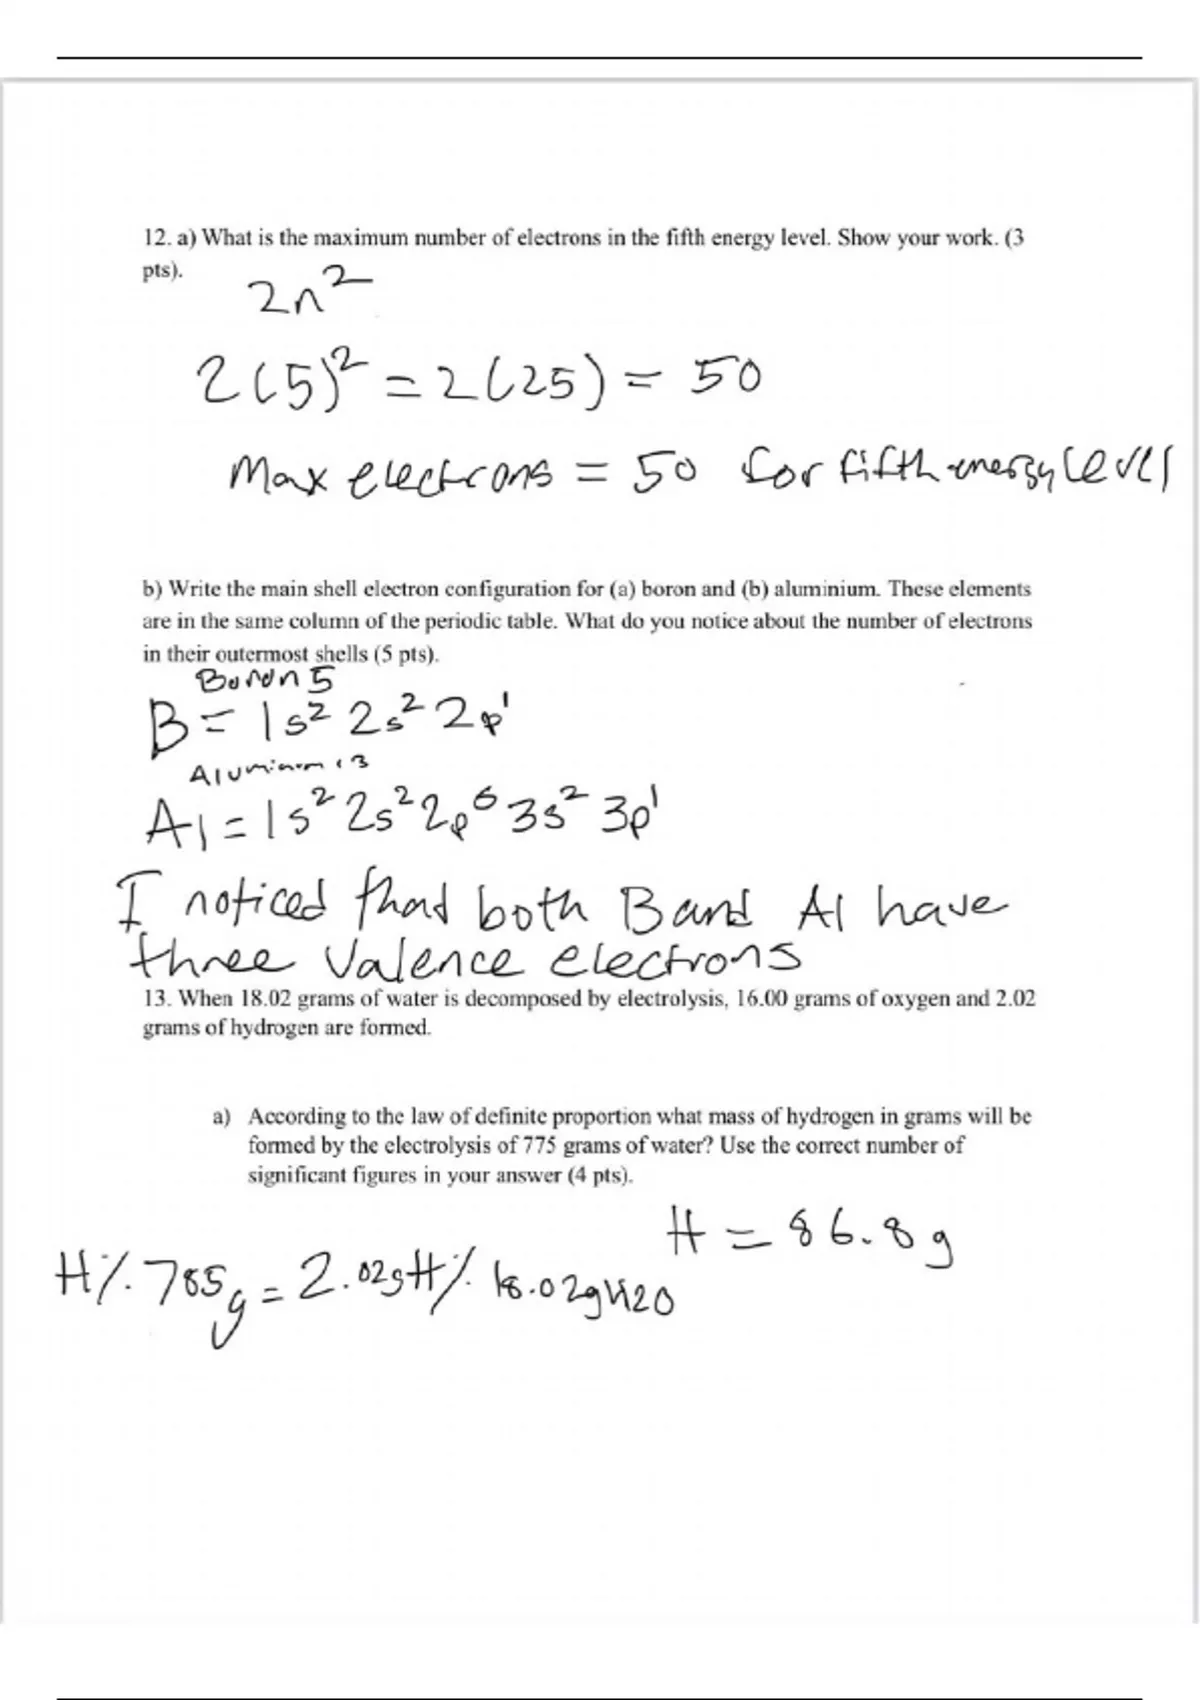 12. a) What is the maximum number of electrons in the fifth energy level. Show your work. (3
pts).
2n²
2(5)² = 2(25) = 50
Max electrons = 50 for fifth energy level
b) Write the main shell electron configuration for (a) boron and (b) aluminium. These elements
are in the same column of the periodic table. What do you notice about the number of electrons
in their outermost shells (5 pts).
Boron 5
B = 1s² 2s² 2p¹
Aluminum 13
Al = 1s² 2s² 2p⁶ 3s² 3p¹
I noticed that both B and Al have
three valence electrons
13. When 18.02 grams of water is decomposed by electrolysis, 16.00 grams of oxygen and 2.02
grams of hydrogen are formed.
a) According to the law of definite proportion what mass of hydrogen in grams will be
formed by the electrolysis of 775 grams of water? Use the correct number of
significant figures in your answer (4 pts).
H = 86.8 g
H/. 785g = 2.02g H/. 18.02g H20